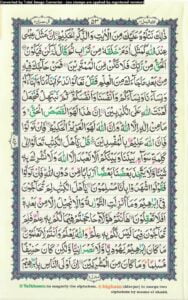 ذٰلِكَ نَتْلُوْهُ عَلَيْكَ مِنَ الْاٰيٰتِ وَالذِّكْرِ الْحَكِيْمِ اِنَّ مَثَلَ عِيْسٰى
عِنْدَ اللّٰهِ كَمَثَلِ اٰدَمَ خَلَقَهٗ مِنْ تُرَابٍ ثُمَّ قَالَ لَهٗ كُنْ فَيَكُوْنُ
اَلْحَقُّ مِنْ رَّبِّكَ فَلَا تَكُنْ مِّنَ الْمُمْتَرِيْنَ فَمَنْ حَآجَّكَ فِيْهِ مِنْ
بَعْدِ مَا جَآءَكَ مِنَ الْعِلْمِ فَقُلْ تَعَالَوْا نَدْعُ اَبْنَآءَنَا وَاَبْنَآءَكُمْ
وَنِسَآءَنَا وَنِسَآءَكُمْ وَاَنْفُسَنَا وَاَنْفُسَكُمْ ثُمَّ نَبْتَهِلْ فَنَجْعَلْ
لَّعْنَتَ اللّٰهِ عَلَى الْكٰذِبِيْنَ اِنَّ هٰذَا لَهُوَ الْقَصَصُ الْحَقُّ وَ
مَا مِنْ اِلٰهٍ اِلَّا اللّٰهُ وَاِنَّ اللّٰهَ لَهُوَ الْعَزِيْزُ الْحَكِيْمُ فَاِنْ تَوَلَّوْا
فَاِنَّ اللّٰهَ عَلِيْمٌ بِالْمُفْسِدِيْنَ قُلْ يٰٓاَهْلَ الْكِتٰبِ تَعَالَوْا اِلٰى
كَلِمَةٍ سَوَآءٍ بَيْنَنَا وَبَيْنَكُمْ اَلَّا نَعْبُدَ اِلَّا اللّٰهَ وَلَا نُشْرِكَ بِهٖ
شَيْئًا وَّلَا يَتَّخِذَ بَعْضُنَا بَعْضًا اَرْبَابًا مِّنْ دُوْنِ اللّٰهِ فَاِنْ تَوَلَّوْا
فَقُوْلُوا اشْهَدُوْا بِاَنَّا مُسْلِمُوْنَ يٰٓاَهْلَ الْكِتٰبِ لِمَ تُحَآجُّوْنَ
فِيْٓ اِبْرٰهِيْمَ وَمَآ اُنْزِلَتِ التَّوْرٰىةُ وَالْاِنْجِيْلُ اِلَّا مِنْۢ بَعْدِهٖ
اَفَلَا تَعْقِلُوْنَ هٰٓاَنْتُمْ هٰٓؤُلَآءِ حَاجَجْتُمْ فِيْمَا لَكُمْ بِهٖ عِلْمٌ فَلِمَ
تُحَآجُّوْنَ فِيْمَا لَيْسَ لَكُمْ بِهٖ عِلْمٌ وَاللّٰهُ يَعْلَمُ وَاَنْتُمْ لَا تَعْلَمُوْنَ
مَا كَانَ اِبْرٰهِيْمُ يَهُوْدِيًّا وَّلَا نَصْرَانِيًّا وَّلٰكِنْ كَانَ حَنِيْفًا
مُّسْلِمًا وَمَا كَانَ مِنَ الْمُشْرِكِيْنَ اِنَّ اَوْلَى النَّاسِ بِاِبْرٰهِيْمَ